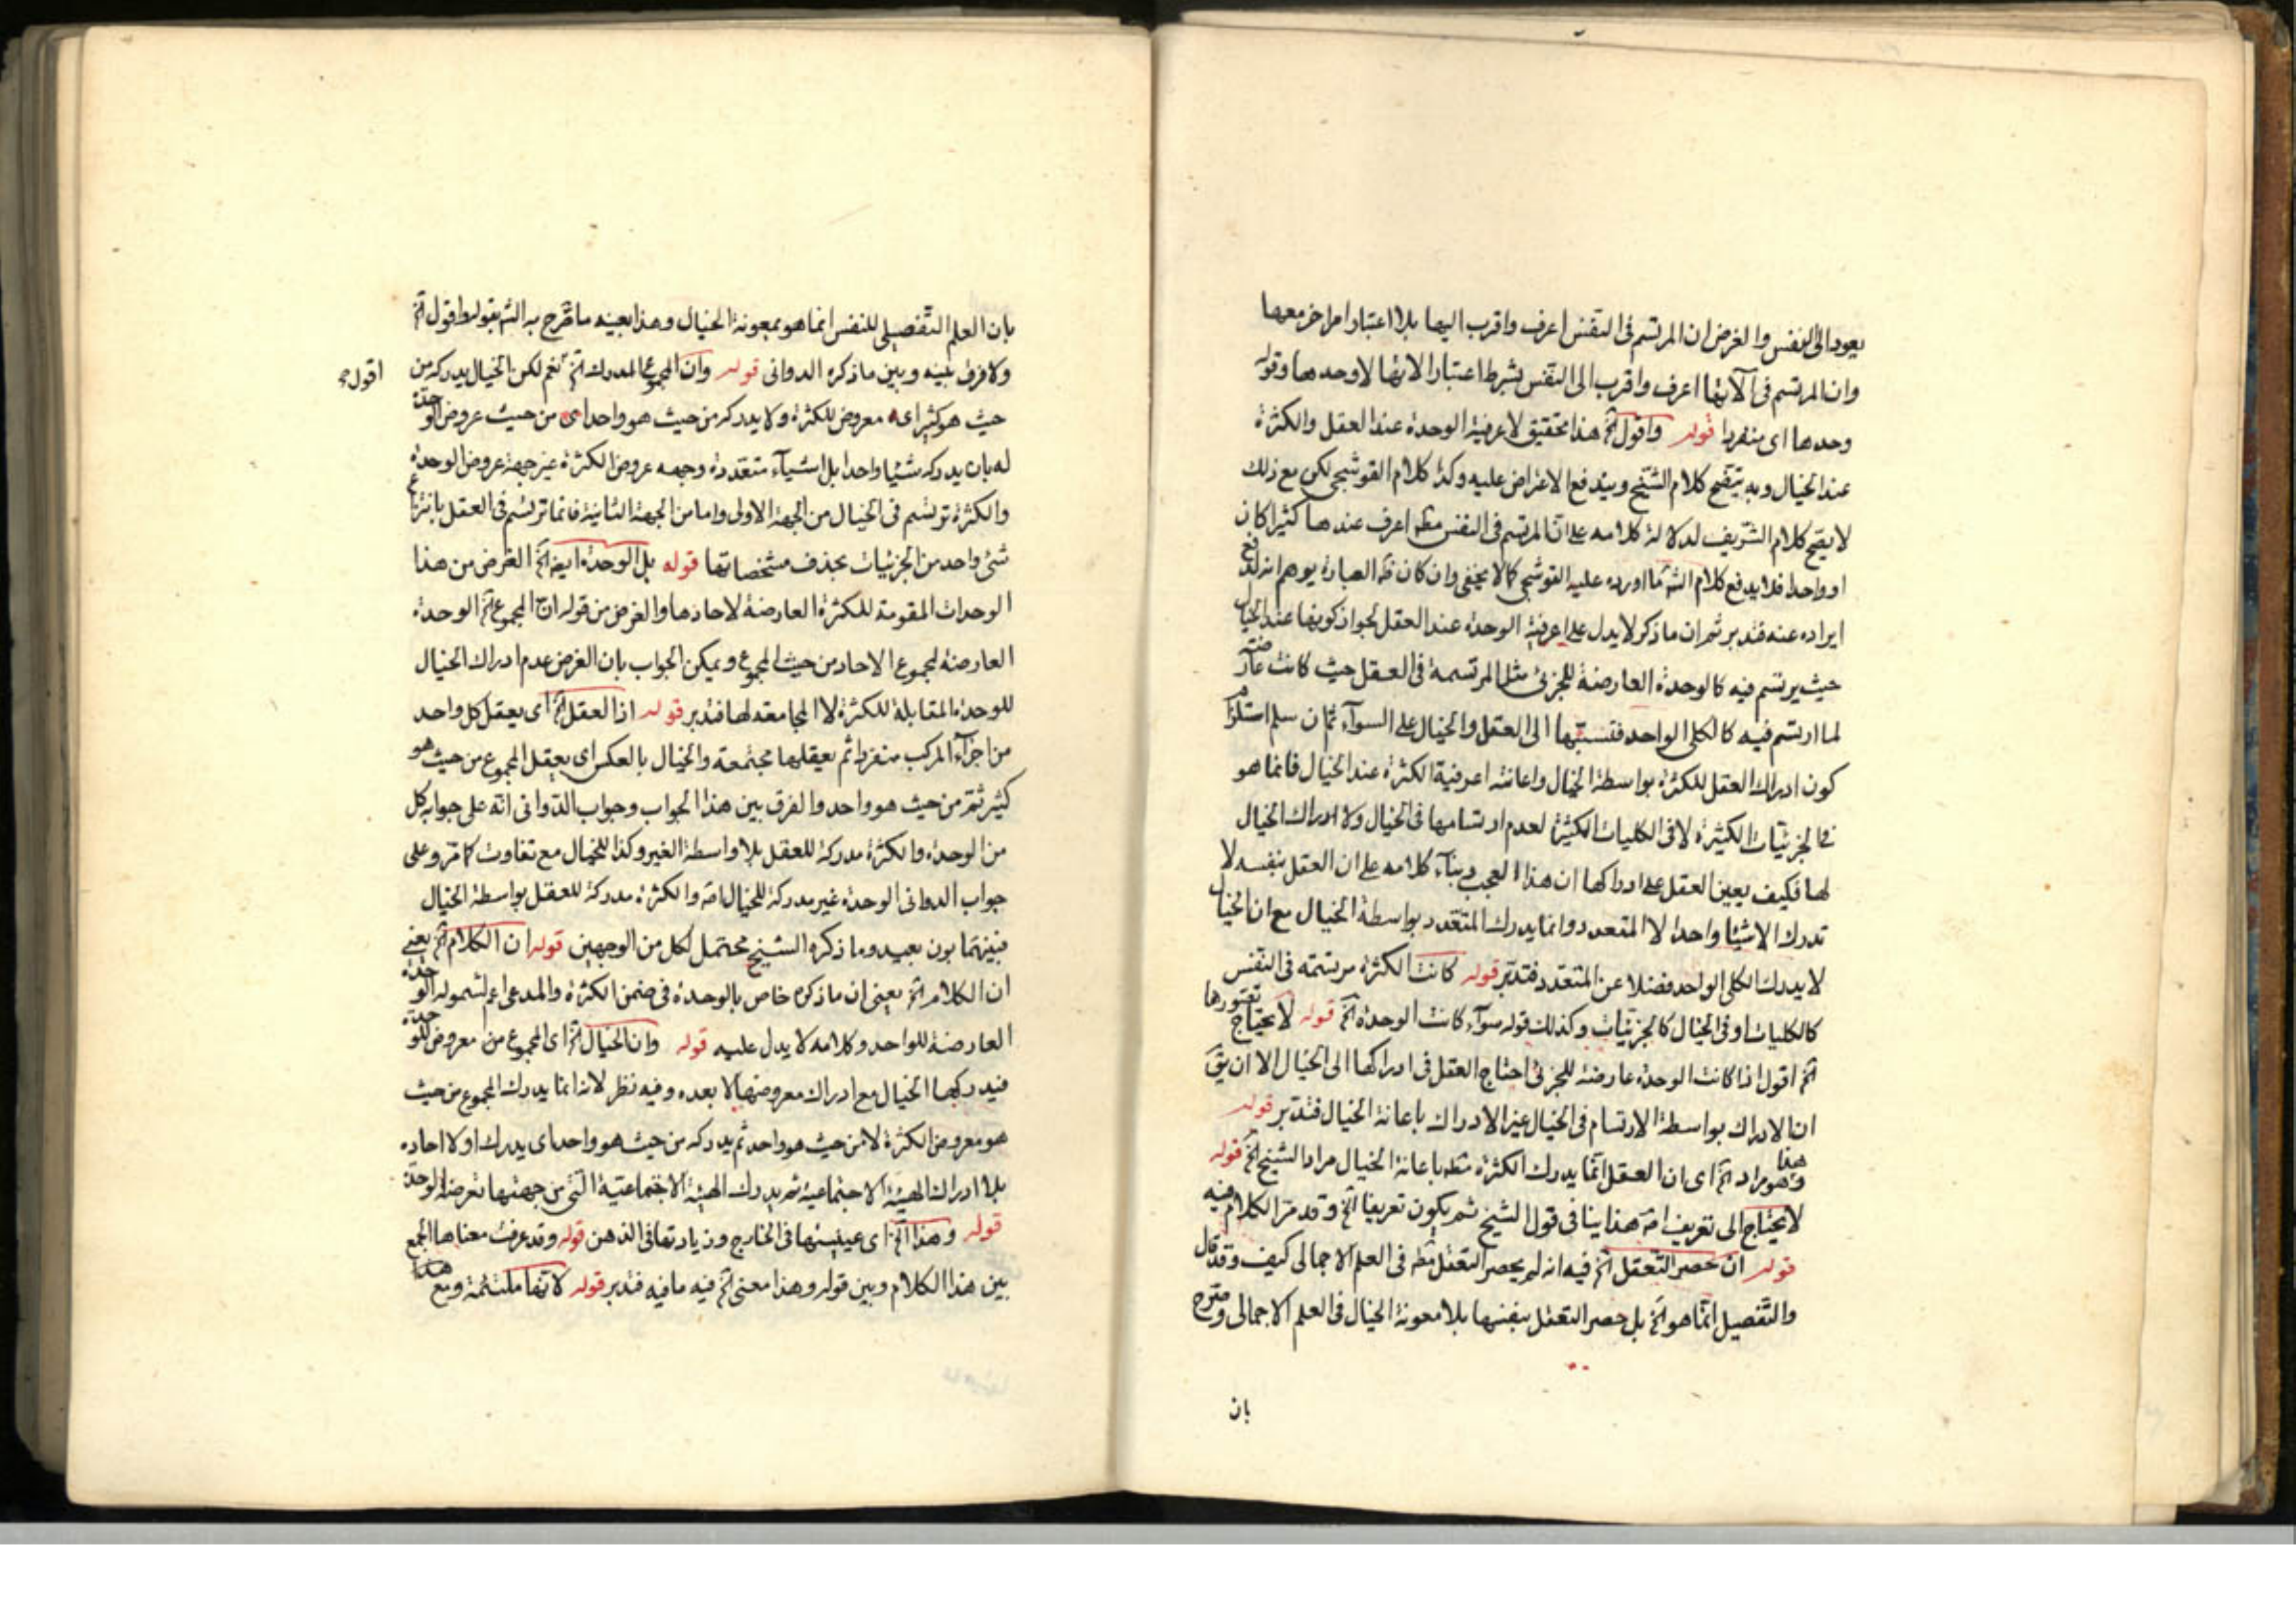 يعود الى النفس والغرض ان المرتسم فى النفس اعرف واقرب اليها بلا اعتبار امر اخر معها
وان المرتسم فى الآتها اعرف واقرب الى النفس بشرط اعتبار الاتها لا وحدها وقوله
وحدها اى منفردا قوله واقول الخ هذا تحقيق لاعرفية الوحدة عند العقل والكثرة
عند الخيال وبه يتضح كلام الشيخ ويندفع الاعتراض عليه وكذا كلام القوشجى لكن مع ذلك
لا يصح كلام الشريف لدلالة كلامه على ان المرتسم فى النفس مطـ اعرف عندها كثيرا كان
او واحدا فلا يدفع كلام الشـ ما اورده عليه القوشجى كما لا يخفى وان كان ظـ العبارة يوهم انه لدفع
ايراده عنه فتدبر ثم ان ما ذكر لا يدل على اعرفية الوحدة عند العقل لجواز كونها عند الخيال
حيث يرتسم فيه كالوحدة العارضة للجزئى مثل المرتسمة فى العقل حيث كانت عارضة
لما ارتسم فيه كالكلى الواحد فنسبتها الى العقل والخيال على السوآء ثم ان سلم استلزام
كون ادراك العقل للكثرة بواسطة الخيال واعانته اعرفية الكثرة عند الخيال فانما هو
فى الجزئيات الكثيرة لا فى الكليات الكثيرة لعدم ارتسامها فى الخيال ولا ادراك الخيال
لها فكيف يعين العقل على ادراكها ان هذا العجب وبنآء كلامه على ان العقل بنفسه لا
تدرك الا شيئا واحدا لا المتعدد وانما يدرك المتعدد بواسطة الخيال مع ان الخيال
لا يدرك الكلى الواحد فضلا عن المتعدد فتدبر قوله كانت الكثرة مرتسمة فى النفس
كالكليات او فى الخيال كالجزئيات وكذلك قوله سوآء كانت الوحدة الخ قوله لا يحتاج تصورها
الخ اقول اذا كانت الوحدة عارضة للجزئى احتاج العقل فى ادراكها الى الخيال الا ان يقـ
ان الادراك بواسطة الارتسام فى الخيال غير الادراك باعانة الخيال فتدبر قوله
وهذا هو مراد الخ اى ان العقل انما يدرك الكثرة مطـ باعانة الخيال مراد الشيخ الخ قوله
لا يحتاج الى تعريف امـ هذا ينافى قول الشيخ ثم يكون تعريفا الخ وقد مر الكلام فيه
قوله ان حصر التعقل الخ فيه انه لم يحصر التعقل مطـ فى العلم الاجمالى كيف وقد قال
والتفصيل انما هو الخ بل حصر التعقل بنفسها بلا معونة الخيال فى العلم الاجمالى وصرح
بان
بان العلم التفصيلى للنفس انما هو بمعونة الخيال وهذا بعينه ما صرح به الشـ بقوله اقول الخ
ولا فرق بينه وبين ما ذكره الدوانى قوله وان المجموع المدرك الخ نعم لكن الخيال يدركه من
اقول
حيث هو كثير اى معروض للكثرة ولا يدركه من حيث هو واحد اى من حيث عروض الوحدة
له بان يدركه شيئا واحدا بل اشيآء متعددة وجهه عروض الكثرة غير جهة عروض الوحدة
والكثرة ترتسم فى الخيال من الجهة الاولى واما من الجهة الثانية فانما ترتسم فى العقل بانتزاع
شئ واحد من الجزئيات بحذف مشخصاتها قوله بل الوحدة ايضا الخ الغرض من هذا
الوحدات المقومة للكثرة العارضة لاحادها والغرض من قوله ان المجموع الخ الوحدة
العارضة لمجموع الاحاد من حيث المجموع ويمكن الجواب بان الغرض عدم ادراك الخيال
للوحدة المقابلة للكثرة لا المجامعة لها فتدبر قوله اذ العقل الخ اى يعقل كل واحد
من اجزآء المركب منفردا ثم يعقلها مجتمعة والخيال بالعكس اى يعقل المجموع من حيث هو
كثير ثم من حيث هو واحد والفرق بين هذا الجواب وجواب الدوانى انه على جوابه كل
من الوحدة والكثرة مدركة للعقل بلا واسطة الغير وكذا للخيال مع تفاوت كما مر وعلى
جواب الدوانى الوحدة غير مدركة للخيال امـ والكثرة مدركة للعقل بواسطة الخيال
فبينهما بون بعيد وما ذكره الشيخ محتمل لكل من الوجهين قوله ان الكلام الخ يعنى
ان الكلام الخ يعنى ان ما ذكره خاص بالوحدة فى ضمن الكثرة والمدعى اعم لشموله الوحدة
العارضة للواحد وكلامه لا يدل عليه قوله وان الخيال الخ اى المجموع من معروض للوحدة
فيدركها الخيال مع ادراك معروضها لا بعده وفيه نظر لانه انما يدرك المجموع من حيث
هو معروض الكثرة لا من حيث هو واحد ثم يدركه من حيث هو واحد اى يدرك اولا احاده
بلا ادراك الهيئة الاجتماعية ثم يدرك الهيئة الاجتماعية التى من جهتها تعرضه الوحدة
قوله وهذا الخ اى عينيتها فى الخارج وزيادتها فى الذهن قوله وقد عرفت معناها الجمع
بين هذا الكلام وبين قوله وهذا معنى الخ فيه ما فيه فتدبر قوله لانها ملتئمة ومع هذا